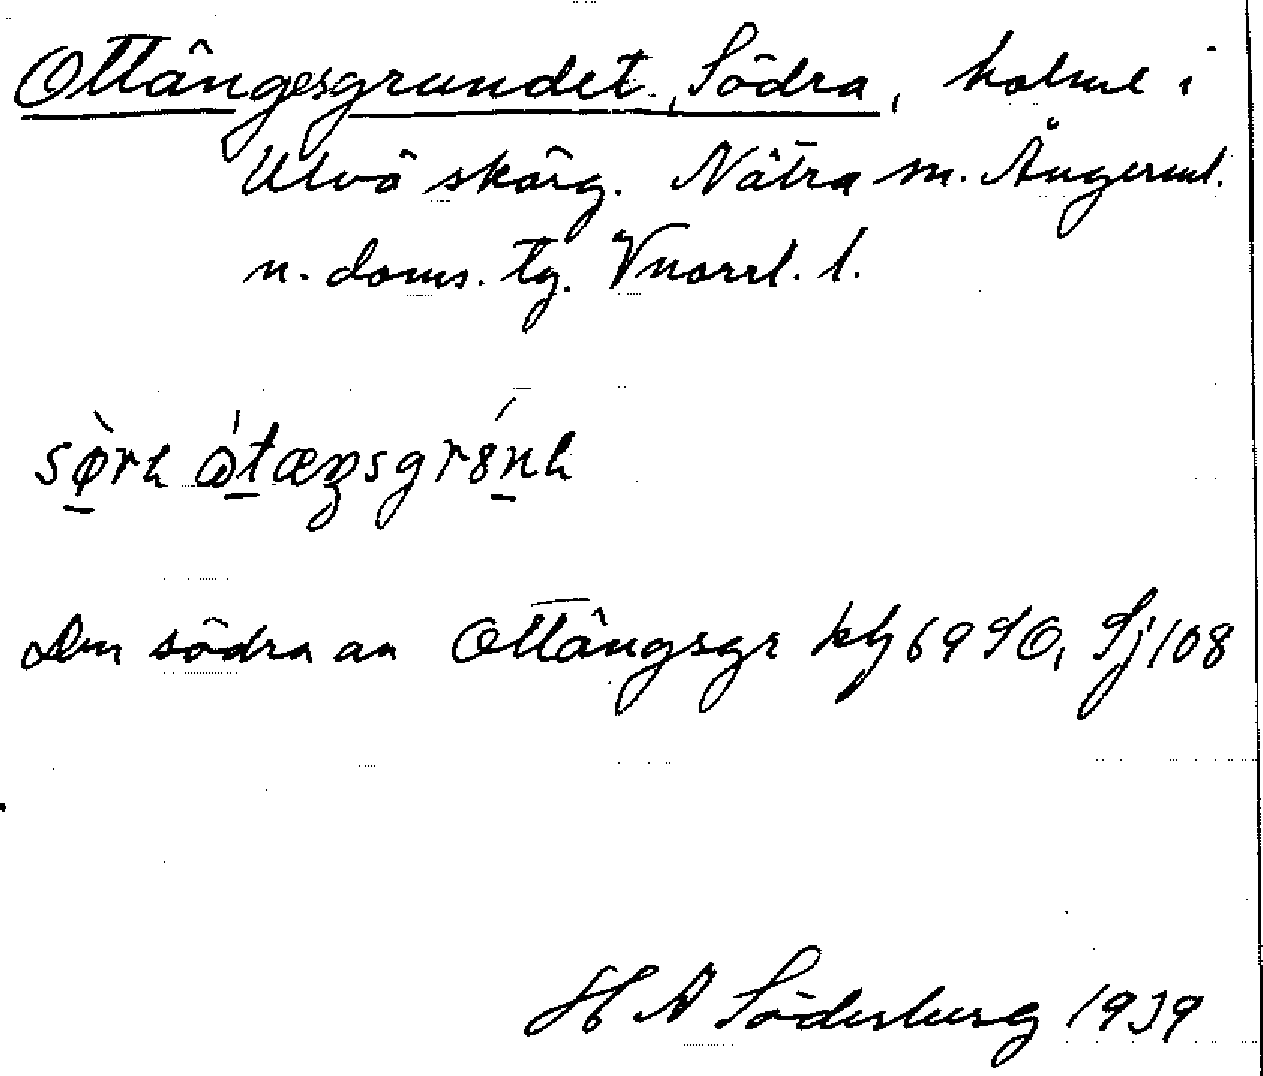 Ottängesgrundet, Södra, holme i
Ulvö skärg. Nätra sn. Ångerml.
n. doms. tg. Vnorrl. l.
Den södra av Ottängsgr kbl 69 SO, Sj 108
H A Söderberg 1939